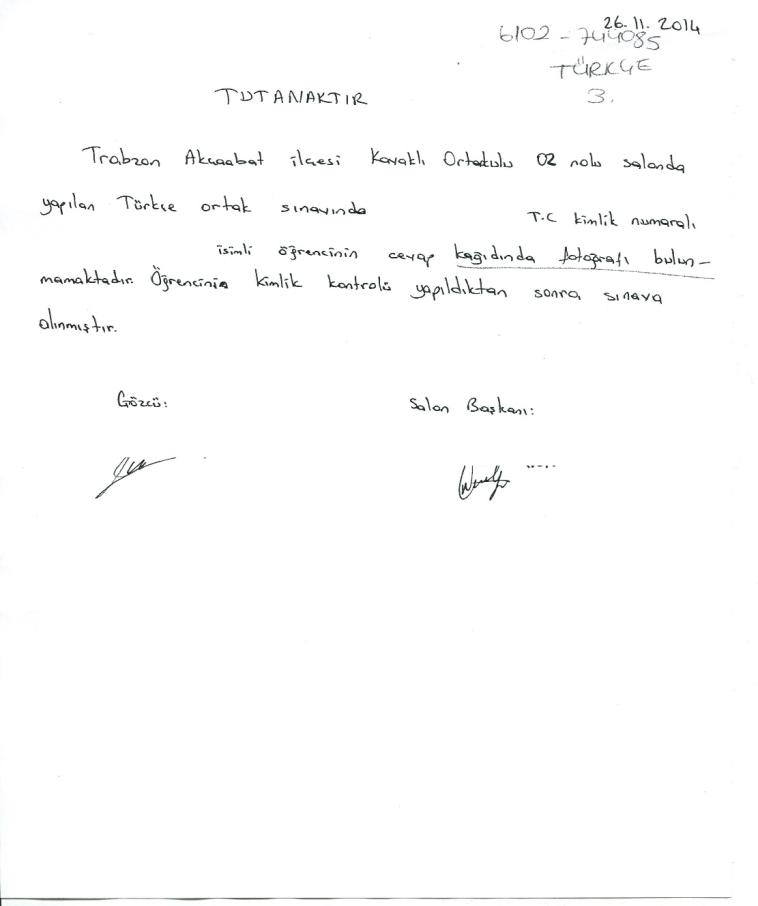 26.11.2014
6102-744085
TÜRKÇE
3.
TUTANAKTIR
Trabzon Akçaabat ilçesi Kavaklı Ortaokulu 02 nolu salonda
yapılan Türkçe ortak sınavında T.C kimlik numaralı
isimli öğrencinin cevap kağıdında fotoğrafı bulun-
mamaktadır. Öğrencinin kimlik kontrolü yapıldıktan sonra sınava
alınmıştır.
Gözcü: Salon Başkanı: